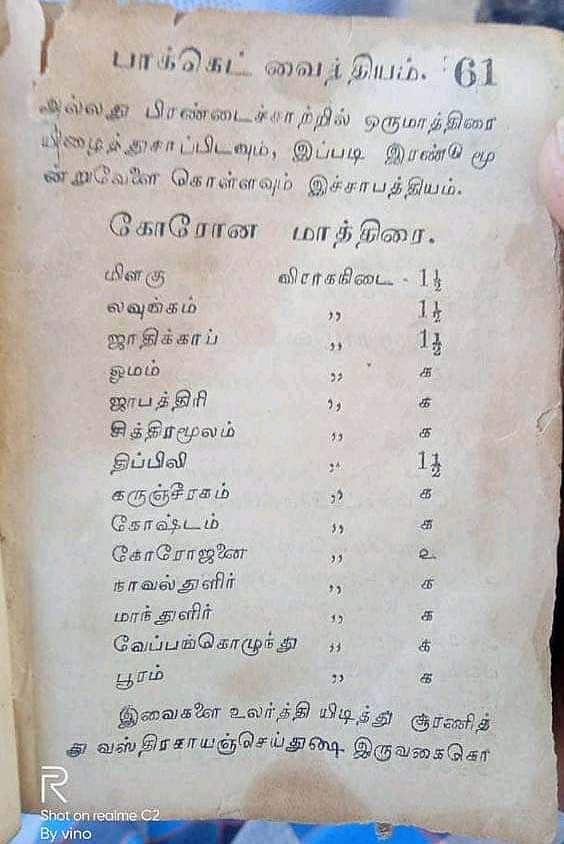 பாக்கெட் வைத்தியம். 61
அல்லது பிரண்டைச்சாற்றில் ஒருமாத்திரை
யிழைத்துசாப்பிடவும், இப்படி இரண்டு மூ
ன்றுவேளை கொள்ளவும் இச்சாபத்தியம்.
கோரோன மாத்திரை.
மிளகு விராகநிடை - 1½
லவுங்கம் ,, 1½
ஜாதிக்காப் ,, 1½
ஓமம் ,, க
ஜாபத்திரி ,, க
சித்திரமூலம் ,, க
திப்பிலி ,, 1½
கருஞ்சீரகம் ,, க
கோஷ்டம் ,, க
கோரோஜனை ,, உ
நாவல்துளிர் ,, க
மாந்துளிர் ,, க
வேப்பங்கொழுந்து ,, க
பூரம் ,, க
இவைகளை உலர்த்தி யிடித்து சூரணித்
து வஸ்திரகாயஞ்செய்து இருவகைகொ
R
Shot on realme C2
By vino